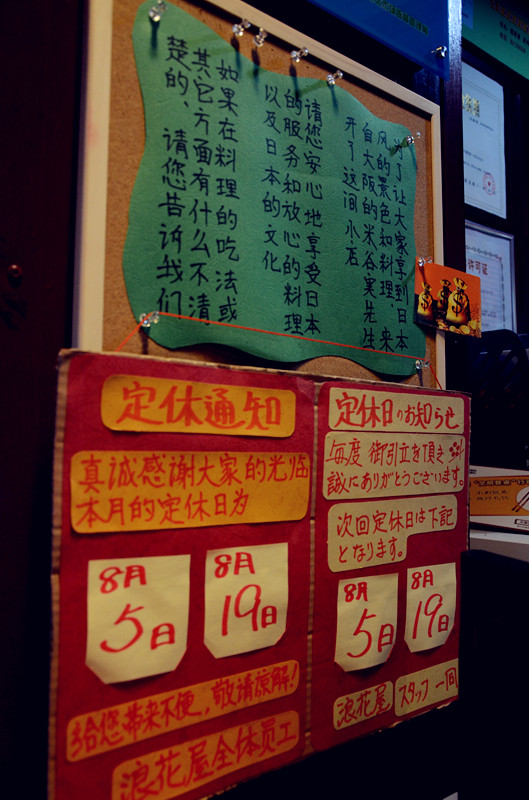 为了让大家享到日本
风的景色和料理、来
自大阪的米谷実先生
开了这间小店
请您安心地享受日本
的服务和放心的料理
以及日本的文化
如果在料理的吃法或
其它方面有什么不清
楚的、请您告诉我们
定休通知
真诚感谢大家的光临
本月的定休日为
8月
5日
8月
19日
给您带来不便,敬请谅解!
浪花屋全体员工
定休日のお知らせ
毎度 御引立を頂き
誠にありがとうございます。
次回定休日は下記
となります。
8月
5日
8月
19日
浪花屋
スタッフ一同
许可证